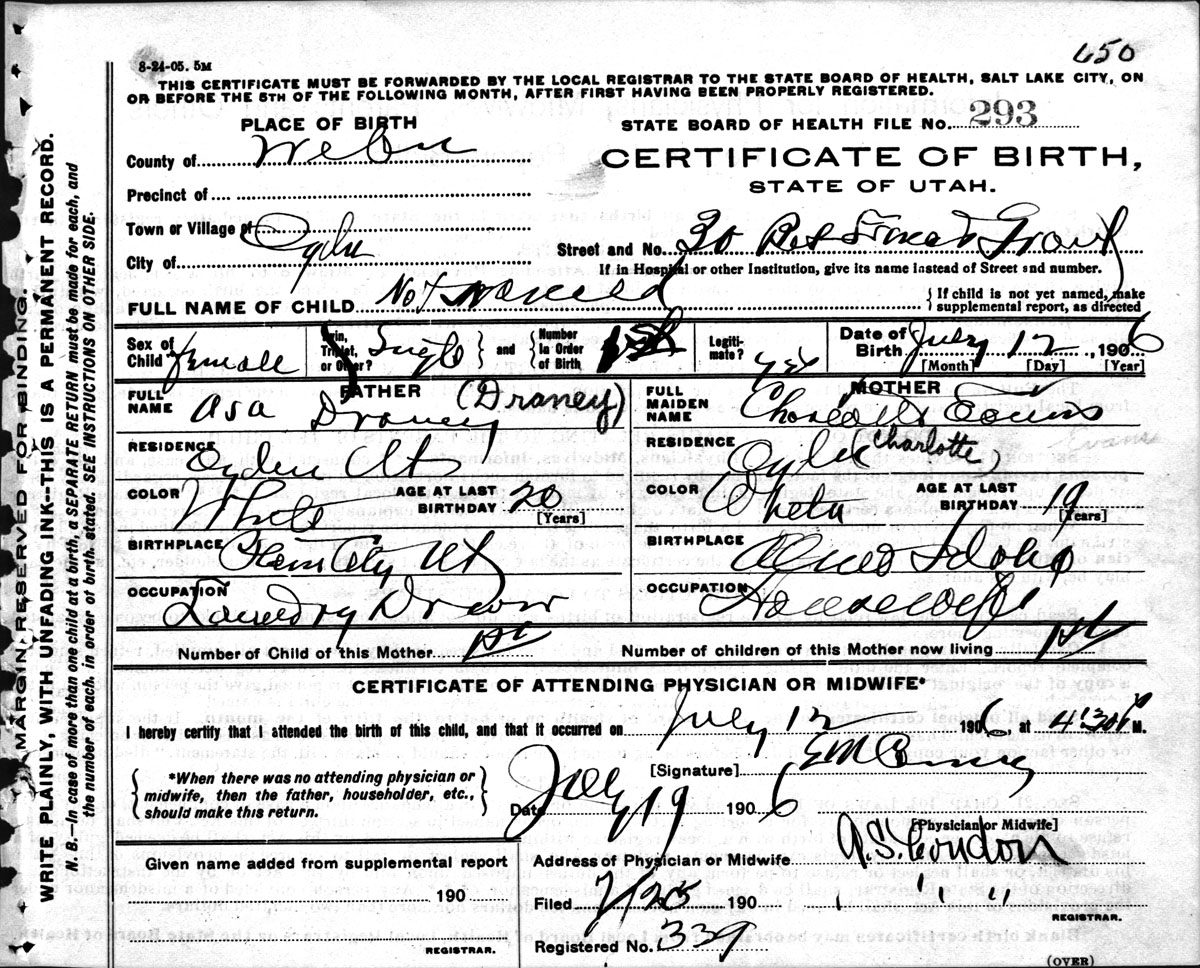 650
8-24-05. 5M
THIS CERTIFICATE MUST BE FORWARDED BY THE LOCAL REGISTRAR TO THE STATE BOARD OF HEALTH, SALT LAKE CITY, ON
OR BEFORE THE 5TH OF THE FOLLOWING MONTH, AFTER FIRST HAVING BEEN PROPERLY REGISTERED.
MARGIN RESERVED FOR BINDING.
WRITE PLAINLY, WITH UNFADING INK--THIS IS A PERMANENT RECORD.
N. B.--In case of more than one child at a birth, a SEPARATE RETURN must be made for each, and
the number of each, in order of birth, stated. SEE INSTRUCTIONS ON OTHER SIDE.
PLACE OF BIRTH
STATE BOARD OF HEALTH FILE No. 293
County of Weber
CERTIFICATE OF BIRTH,
STATE OF UTAH.
Precinct of
Town or Village of
City of Ogden
Street and No. 30
If in Hospital or other Institution, give its name instead of Street and number.
FULL NAME OF CHILD Not named
If child is not yet named, make
supplemental report, as directed
Sex of Child female Twin, Triplet, or Other? Single and Number in Order of Birth 1st Legitimate? yes Date of Birth July 12, 1906
[Month] [Day] [Year]
FATHER
FULL NAME Asa Draney (Draney)
RESIDENCE Ogden Ut
COLOR White AGE AT LAST BIRTHDAY 20 [Years]
BIRTHPLACE Plain City Ut
OCCUPATION Laundry Driver
MOTHER
FULL MAIDEN NAME
Evans
RESIDENCE Ogden (Charlotte)
COLOR White AGE AT LAST BIRTHDAY 19 [Years]
BIRTHPLACE Idaho
OCCUPATION Housewife
Number of Child of this Mother 1st Number of children of this Mother now living 1st
CERTIFICATE OF ATTENDING PHYSICIAN OR MIDWIFE*
I hereby certify that I attended the birth of this child, and that it occurred on July 12 1906, at 4:30 P M.
*When there was no attending physician or
midwife, then the father, householder, etc.,
should make this return.
[Signature] E M
Date July 19 1906
[Physician or Midwife]
Given name added from supplemental report
190
REGISTRAR.
Address of Physician or Midwife A.S. Condon
Filed 7/25 190 " "
REGISTRAR.
Registered No. 339
(OVER)